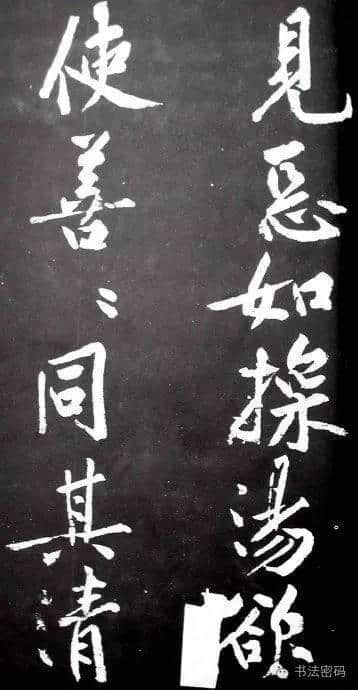 見惡如探湯欲
使善〻同其清
书法密码